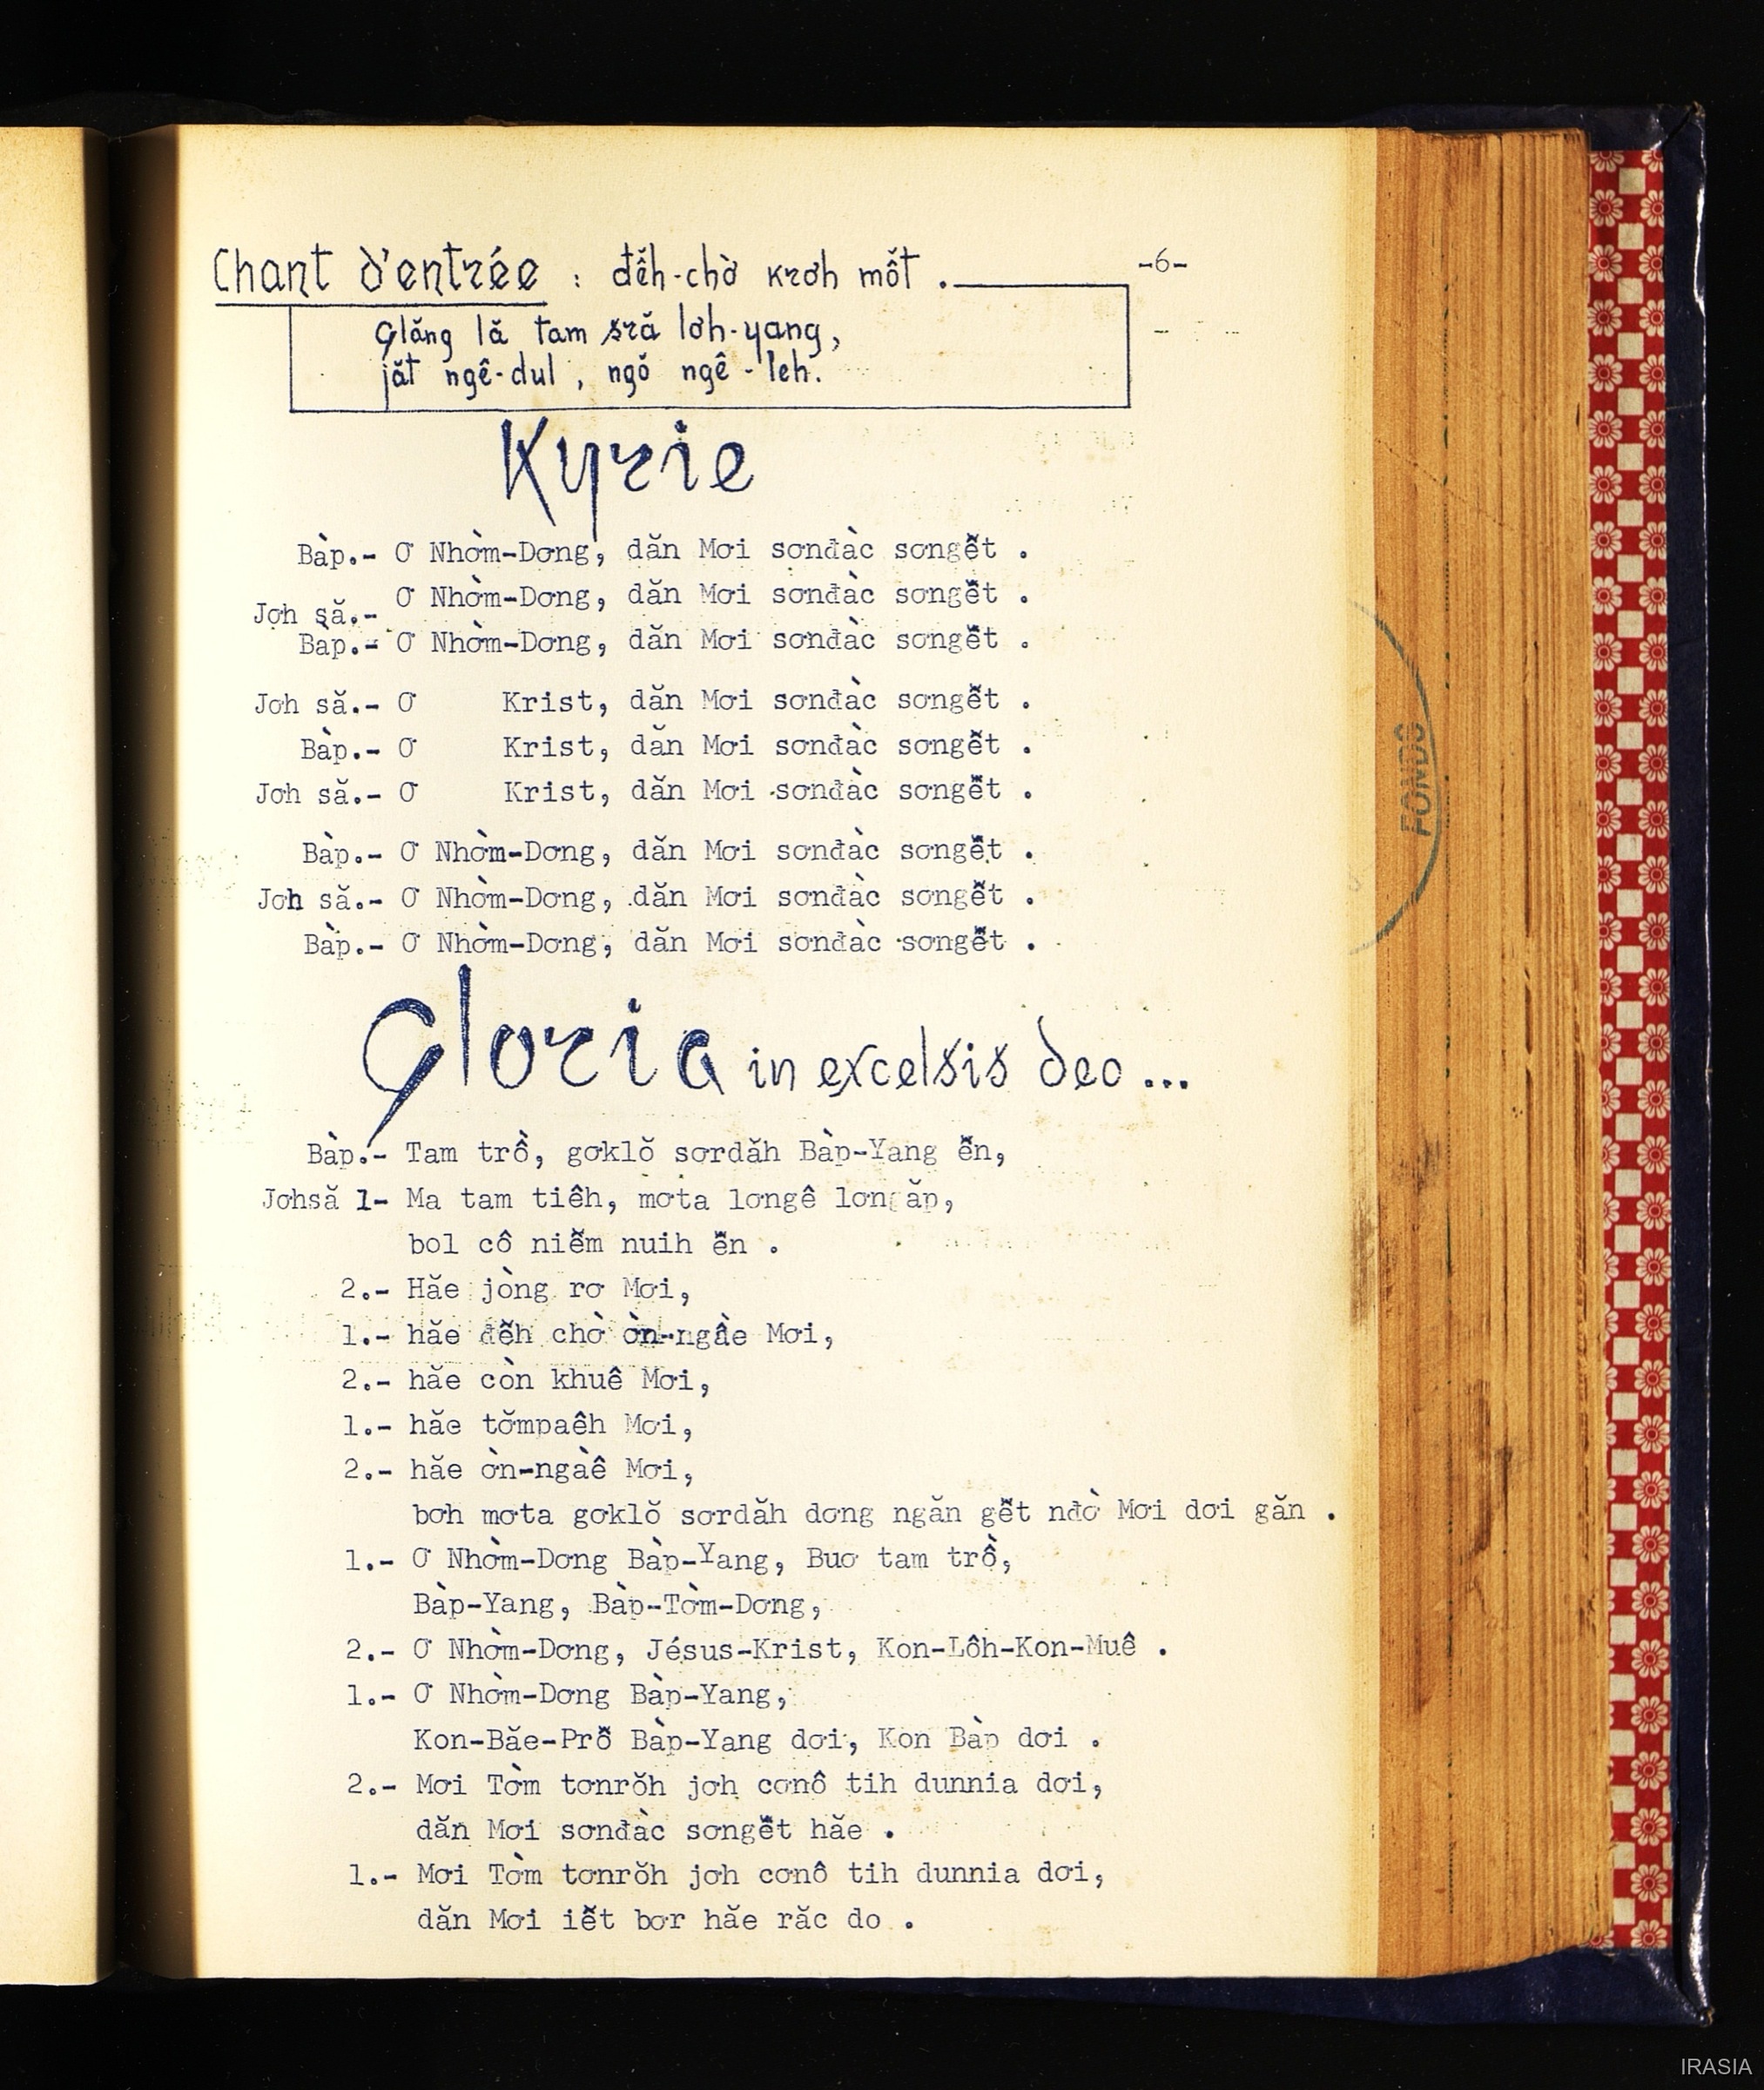 Chant d'entrée : đễh-chờ krơh mốt . -6-
Glăng lă tam sră lơh-yang,
jăt ngê-dul, ngŏ ngê-leh.
Kyrie
Bàp.- Ơ Nhờm-Dơng, dăn Mơi sơnđàc sơngễt .
Jơh să.- Ơ Nhờm-Dơng, dăn Mơi sơnđàc sơngễt .
Bàp.- Ơ Nhờm-Dơng, dăn Mơi sơnđàc sơngễt .
Jơh să.- Ơ Krist, dăn Mơi sơnđàc sơngễt .
Bàp.- Ơ Krist, dăn Mơi sơnđàc sơngễt .
Jơh să.- Ơ Krist, dăn Mơi sơnđàc sơngễt .
Bàp.- Ơ Nhờm-Dơng, dăn Mơi sơnđàc sơngễt .
Jơh să.- Ơ Nhờm-Dơng, dăn Mơi sơnđàc sơngễt .
Bàp.- Ơ Nhờm-Dơng, dăn Mơi sơnđàc sơngễt .
Gloria in excelsis deo ...
Bàp.- Tam trồ, gơklŏ sơrdăh Bàp-Yang ễn,
Jơhsă 1- Ma tam tiêh, mơta lơngê lơngăp,
bol cô niễm nuih ễn .
2.- Hăe jòng rơ Mơi,
1.- hăe đễh chờ ờn-ngầe Mơi,
2.- hăe còn khuê Mơi,
1.- hăe tơ̆mpaêh Mơi,
2.- hăe ờn-ngàê Mơi,
bơh mơta gơklŏ sơrdăh dơng ngăn gễt nđờ Mơi dơi găn .
1.- Ơ Nhờm-Dơng Bàp-Yang, Buơ tam trồ,
Bàp-Yang, Bàp-Tờm-Dơng,
2.- Ơ Nhờm-Dơng, Jésus-Krist, Kon-Lôh-Kon-Muê .
1.- Ơ Nhờm-Dơng Bàp-Yang,
Kon-Băe-Prỗ Bàp-Yang dơi, Kon Bàp dơi .
2.- Mơi Tờm tơnrŏh jơh cơnô tih dunnia dơi,
dăn Mơi sơnđàc sơngễt hăe .
1.- Mơi Tờm tơnrŏh jơh cơnô tih dunnia dơi,
dăn Mơi iễt bơr hăe răc do .
FONDS
IRASIA